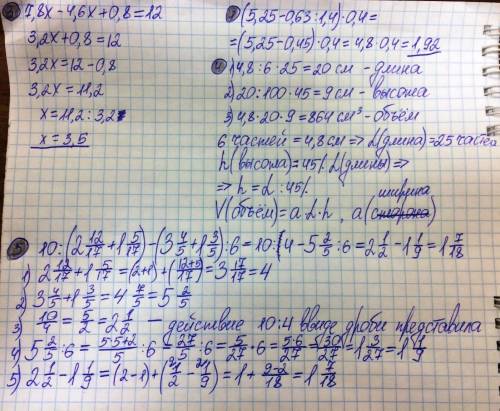 2) 7,8x - 4,6x + 0,8 = 12
3,2x + 0,8 = 12
3,2x = 12 - 0,8
3,2x = 11,2
x = 11,2 : 3,2
x = 3,5
1) (5,25 - 0,63 : 1,4) · 0,4 =
= (5,25 - 0,45) · 0,4 = 4,8 · 0,4 = 1,92
4) 1) 4,8 : 6 · 25 = 20 см - длина
2) 20 : 100 · 45 = 9 см - высота
3) 4,8 · 20 · 9 = 864 см³ - объём
6 частей = 4,8 см => L(длина) = 25 частей
h(высота) = 45% L(длины) =>
=> h = L : 45%
V(объём) = a · L · h, a (ширина)
5) 10 : (2 12/17 + 1 5/17) - (3 4/5 + 1 3/5) : 6 = 10 : 4 - 5 2/5 : 6 = 2 1/2 - 1 1/9 = 1 7/18
1) 2 12/17 + 1 5/17 = (2+1) + (12+5/17) = 3 17/17 = 4
2) 3 4/5 + 1 3/5 = 4 7/5 = 5 2/5
3) 10/4 = 5/2 = 2 1/2 - действие 10:4 ввиде дроби представила
4) 5 2/5 : 6 = 5·5+2/5 : 6 = 27/5 : 6 = 5/27 · 6 = 5·6/27 = 30/27 = 1 3/27 = 1 1/9
5) 2 1/2 - 1 1/9 = (2-1) + (1/2 - 1/9) = 1 + 9-2/18 = 1 7/18